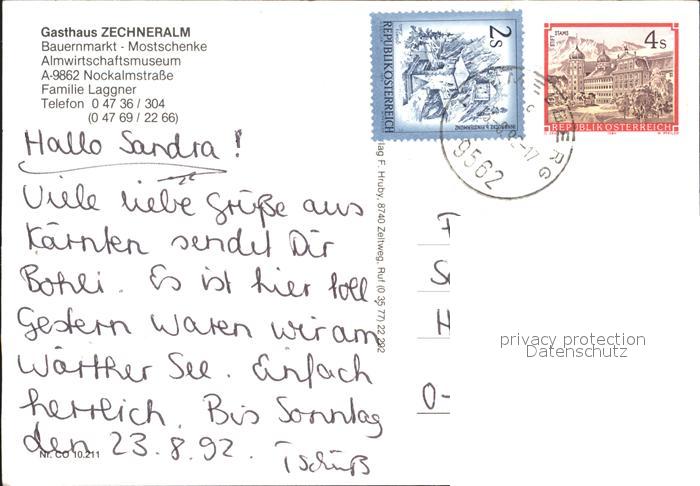 Gasthaus ZECHNERALM
Bauernmarkt - Mostschenke
Almwirtschaftsmuseum
A-9862 Nockalmstraße
Familie Laggner
Telefon 0 47 36 / 304
(0 47 69 / 22 66)
Hallo Sandra!
Viele liebe Grüße aus
Kärnten sendet Dir
Bohli. Es ist hier toll
Gestern waren wir am
Wörther See. Einfach
herrlich. Bis Sonntag
den 23.8.92.
Tschüß
Nr. CO 10.211
lag F. Hruby, 8740 Zeltweg, Ruf (0 35 77) 22 292
2s
REPUBLIK ÖSTERREICH
STIFT STAMS
4s
REPUBLIK ÖSTERREICH
9562
H
O-
privacy protection
Datenschutz